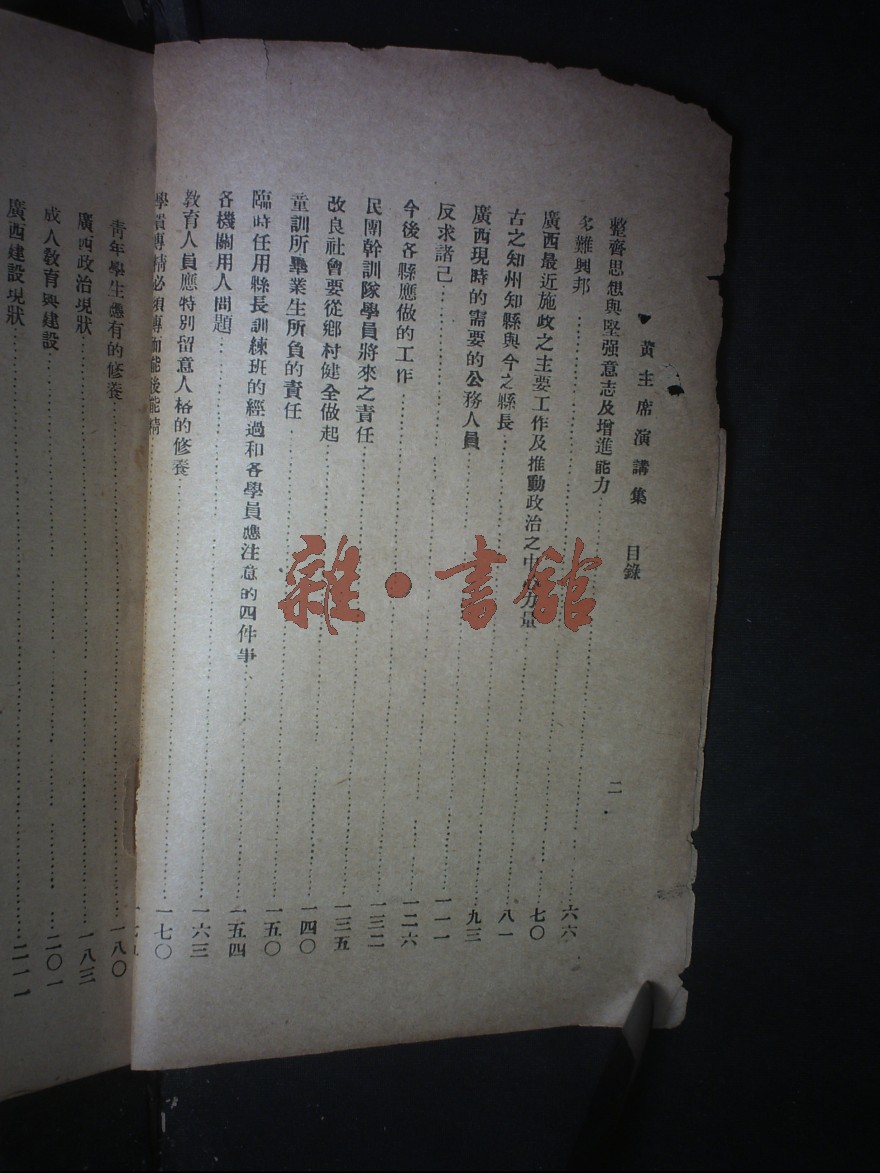 黃主席演講集 目錄 二
整齊思想與堅强意志及增進能力……六六
多難興邦……七〇
廣西最近施政之主要工作及推動政治之中心力量……八一
古之知州知縣與今之縣長……九三
廣西現時的需要的公務人員……一一一
反求諸己……一二六
今後各縣應做的工作……一三二
民團幹訓隊學員將來之責任……一三五
改良社會要從鄉村健全做起……一四〇
童訓所畢業生所負的責任……一五〇
臨時任用縣長訓練班的經過和各學員應注意的四件事……一五四
各機關用人問題……一六三
教育人員應特別留意人格的修養……一七〇
學貴專精必須專而能後能精……一七五
青年學生應有的修養……一八〇
廣西政治現狀……一八三
成人教育與建設……二〇一
廣西建設現狀……二一一
雜·書館